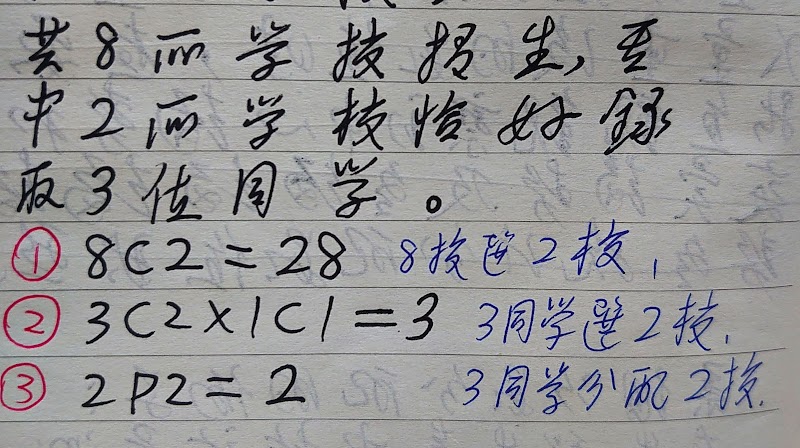 共8所学校招生,其
中2所学校恰好録
取3位同学。
① 8C2=28 8校选2校,
② 3C2×1C1=3 3同学選2校.
③ 2P2=2 3同学分配2校.